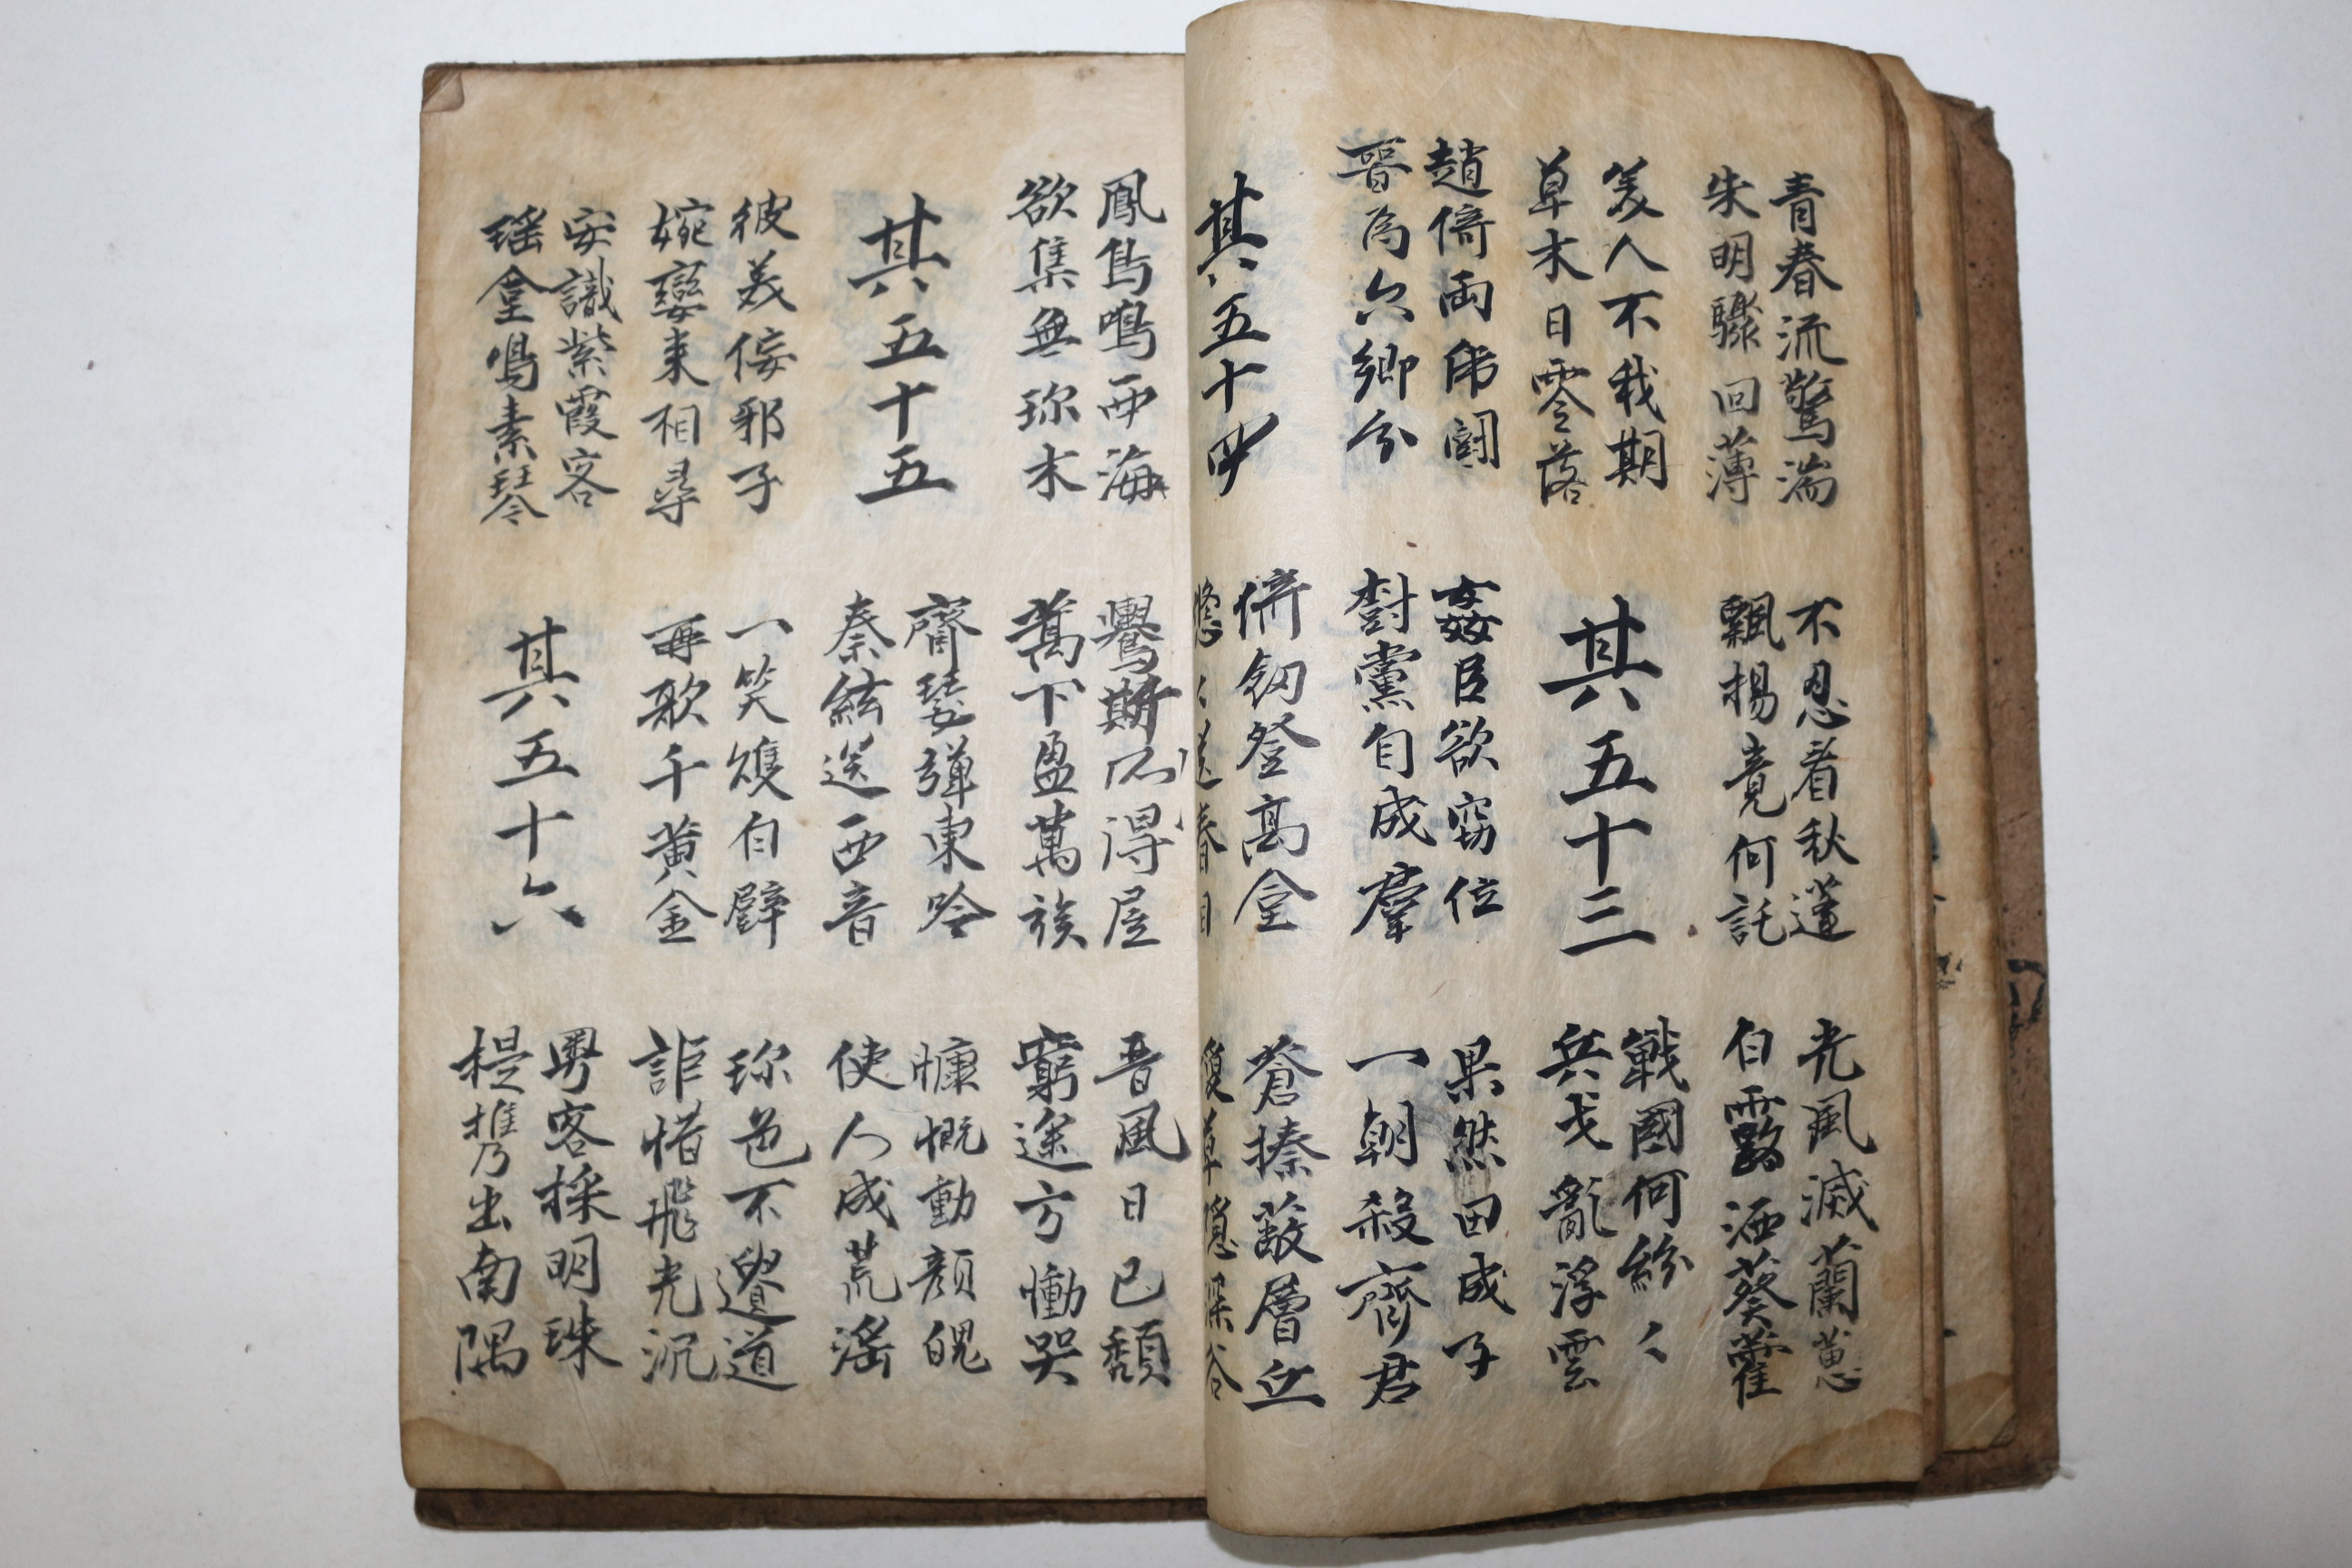 青春流驚湍
朱明驟回薄
不忍看秋蓬
飄揚竟何託
光風滅蘭蕙
白露洒葵藿
美人不我期
草木日零落
其五十三
戰國何紛〻
兵戈亂浮雲
趙倚兩虎鬪
晉為六卿分
姦臣欲竊位
樹黨自成羣
果然田成子
一朝殺齊君
其五十四
倚釼登高堂
悠〻送春目
蒼榛蔽層丘
草隱深谷
鳳鳥鳴西海
欲集無珍木
鸒斯所得居
蒿下盈萬族
晉風日已頹
窮途方慟哭
其五十五
齊瑟彈東吟
秦絃送西音
慷慨動顔魄
使人成荒滛
彼美佞邪子
婉孌来相尋
一笑雙白璧
再歌千黄金
珍色不貴道
詎惜飛光沉
安識紫霞客
瑶堂鳴素琴
其五十六
粤客採明珠
提携出南隅